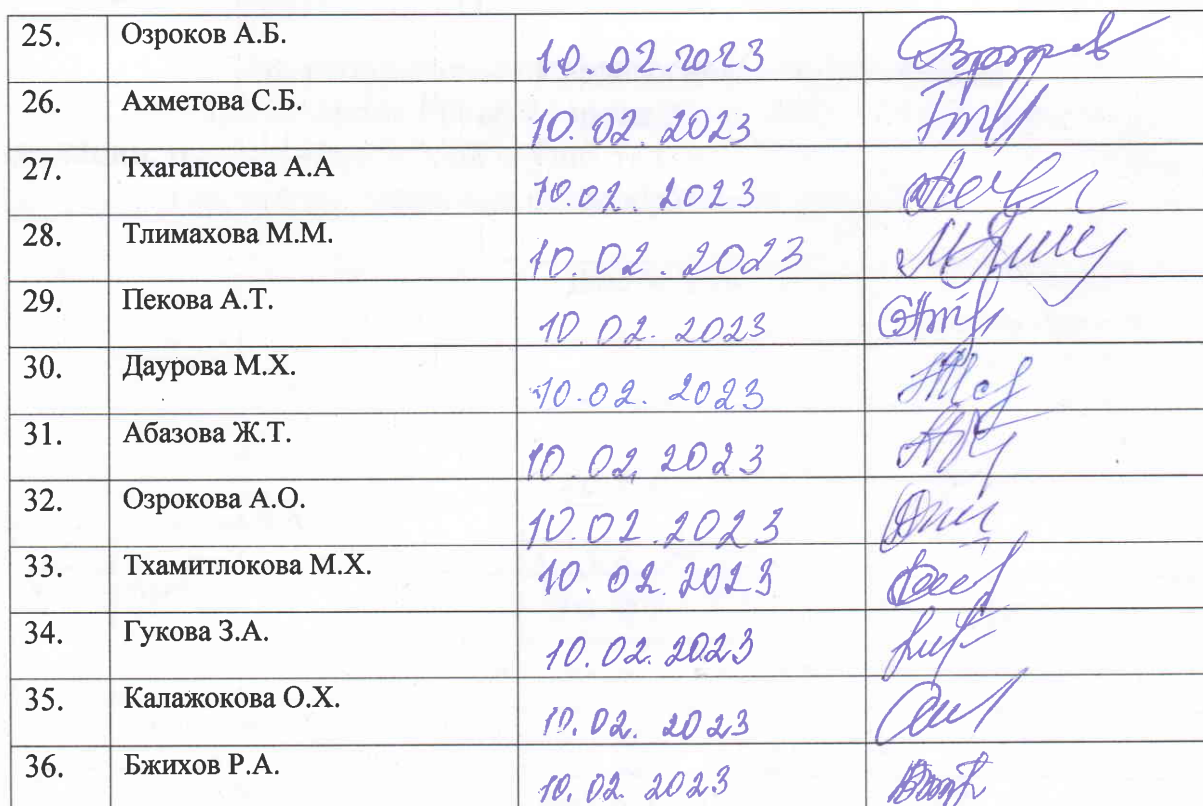 25. Озроков А.Б. 10.02.2023
26. Ахметова С.Б. 10.02.2023
27. Тхагапсоева А.А 10.02.2023
28. Тлимахова М.М. 10.02.2023
29. Пекова А.Т. 10.02.2023
30. Даурова М.Х. 10.02.2023
31. Абазова Ж.Т. 10.02.2023
32. Озрокова А.О. 10.02.2023
33. Тхамитлокова М.Х. 10.02.2023
34. Гукова З.А. 10.02.2023
35. Калажокова О.Х. 10.02.2023
36. Бжихов Р.А. 10.02.2023